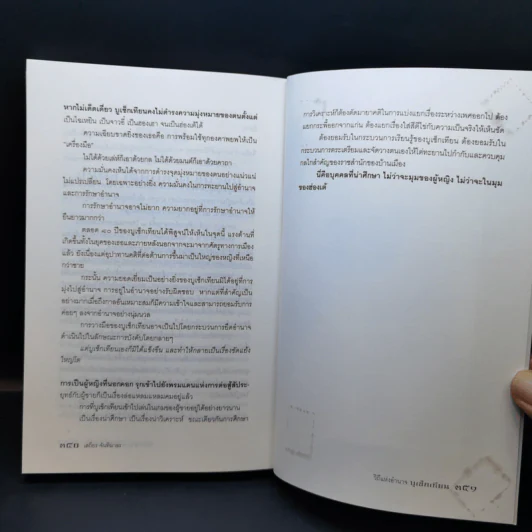 หากไม่เด็ดเดี่ยว บูเช็กเทียนคงไม่ดำรงความมุ่งหมายของตนตั้งแต่
เป็นไฉเหยิน เป็นจาวอี๋ เป็นฮองเฮา จนเป็นฮ่องเต้ได้
ความเฉียบขาดยิ่งของเธอคือ การพร้อมใช้ทุกองคาพยพให้เป็น
"เครื่องมือ"
ไม่ได้ด้วยเล่ห์ก็เอาด้วยกล ไม่ได้ด้วยมนต์ก็เอาด้วยคาถา
ความมั่นคงเห็นได้จากการดำรงจุดมุ่งหมายของตนอย่างแน่วแน่
ไม่แปรเปลี่ยน โดยเฉพาะอย่างยิ่ง ความมั่นคงในการทะยานไปสู่อำนาจ
และการรักษาอำนาจ
การรักษาอำนาจอาจไม่ยาก ความยากอยู่ที่การรักษาอำนาจให้
ยืนยาวมากกว่า
ตลอด ๔๐ ปีของบูเช็กเทียนได้พิสูจน์ให้เห็นในจุดนี้ แรงต้านที่
เกิดขึ้นทั้งในยุคของเธอและภายหลังนอกจากจะมาจากศัตรูทางการเมือง
แล้ว ยังเนื่องแต่อุปาทานคติที่ต่อต้านการขึ้นมาเป็นใหญ่ของหญิงที่เหนือ
กว่าชาย
กระนั้น ความยอดเยี่ยมเป็นอย่างยิ่งของบูเช็กเทียนมิได้อยู่ที่การ
มุ่งไปสู่อำนาจ การอยู่ในอำนาจอย่างรับผิดชอบ หากแต่ที่สำคัญเป็น
อย่างมากเมื่อถึงกาลอันเหมาะสมก็มีความเข้าใจและสามารถยอมรับการ
ค่อยๆ ลงจากอำนาจอย่างนุ่มนวล
การวางมือของบูเช็กเทียนอาจเป็นไปโดยกระบวนการยึดอำนาจ
ดำเนินไปในลักษณะและการบังคับโดยกลายๆ
แต่บูเช็กเทียนเองก็มิได้แข็งขืน และทำให้กลายเป็นเรื่องขัดแย้ง
ใหญ่โต
การเป็นผู้หญิงที่นอกคอก รุกเข้าไปยังพรมแดนแห่งการต่อสู้สัประ-
ยุทธ์กับผู้ชายก็เป็นเรื่องล่อแหลมแหลมคมอยู่แล้ว
การที่บูเช็กเทียนเข้าไปเล่นในเกมของผู้ชายอยู่ได้อย่างยาวนาน
เป็นเรื่องน่าศึกษา เป็นเรื่องน่าวิเคราะห์ ขณะเดียวกันการศึกษา
เสถียร จันทิมาธร
การวิเคราะห์ก็ต้องตัดมายาคติในการแบ่งแยกเรื่องระหว่างเพศออกไป ต้อง
แยกกระพี้ออกจากแก่น ต้องแยกเรื่องใส่สีตีไข่กับความเป็นจริงให้เห็นชัด
ต้องยอมรับในกระบวนการเรียนรู้ของบูเช็กเทียน ต้องยอมรับใน
กระบวนการตระเตรียมและจัดวางตนเองให้ไต่ทะยานไปกำกับและควบคุม
กลไกสำคัญของราชสำนักของบ้านเมือง
นี่คือบุคคลที่น่าศึกษา ไม่ว่าจะมุมของผู้หญิง ไม่ว่าจะในมุม
ของฮ่องเต้
วิถีแห่งอำนาจ บูเช็กเทียน